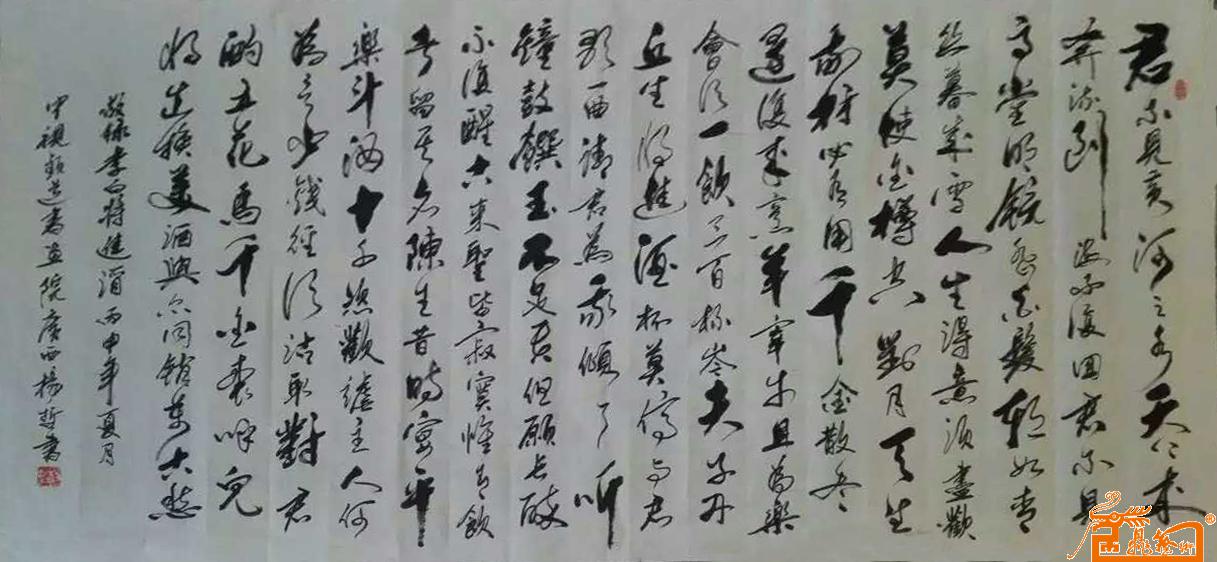 君不见黄河之水天上来
奔流到海不復回君不見
高堂明鏡悲白髮朝如青
丝暮成雪人生得意須盡歡
莫使金樽空對月天生
我材必有用千金散尽
還復來烹羊宰牛且為樂
會須一飲三百杯岑夫子丹
丘生將進酒杯莫停与君
歌一曲請君為我傾耳听
鐘鼓饌玉不足貴但願长醉
不復醒古来聖賢皆寂寞惟有飲
者留其名陳王昔時宴平
樂斗酒十千恣歡謔主人何
為言少錢徑須沽取對君
酌五花馬千金裘呼兒
将出换美酒與尔同銷萬古愁
敬録李白将進酒丙申年夏月
中視頻道書画院廣西楊哲書